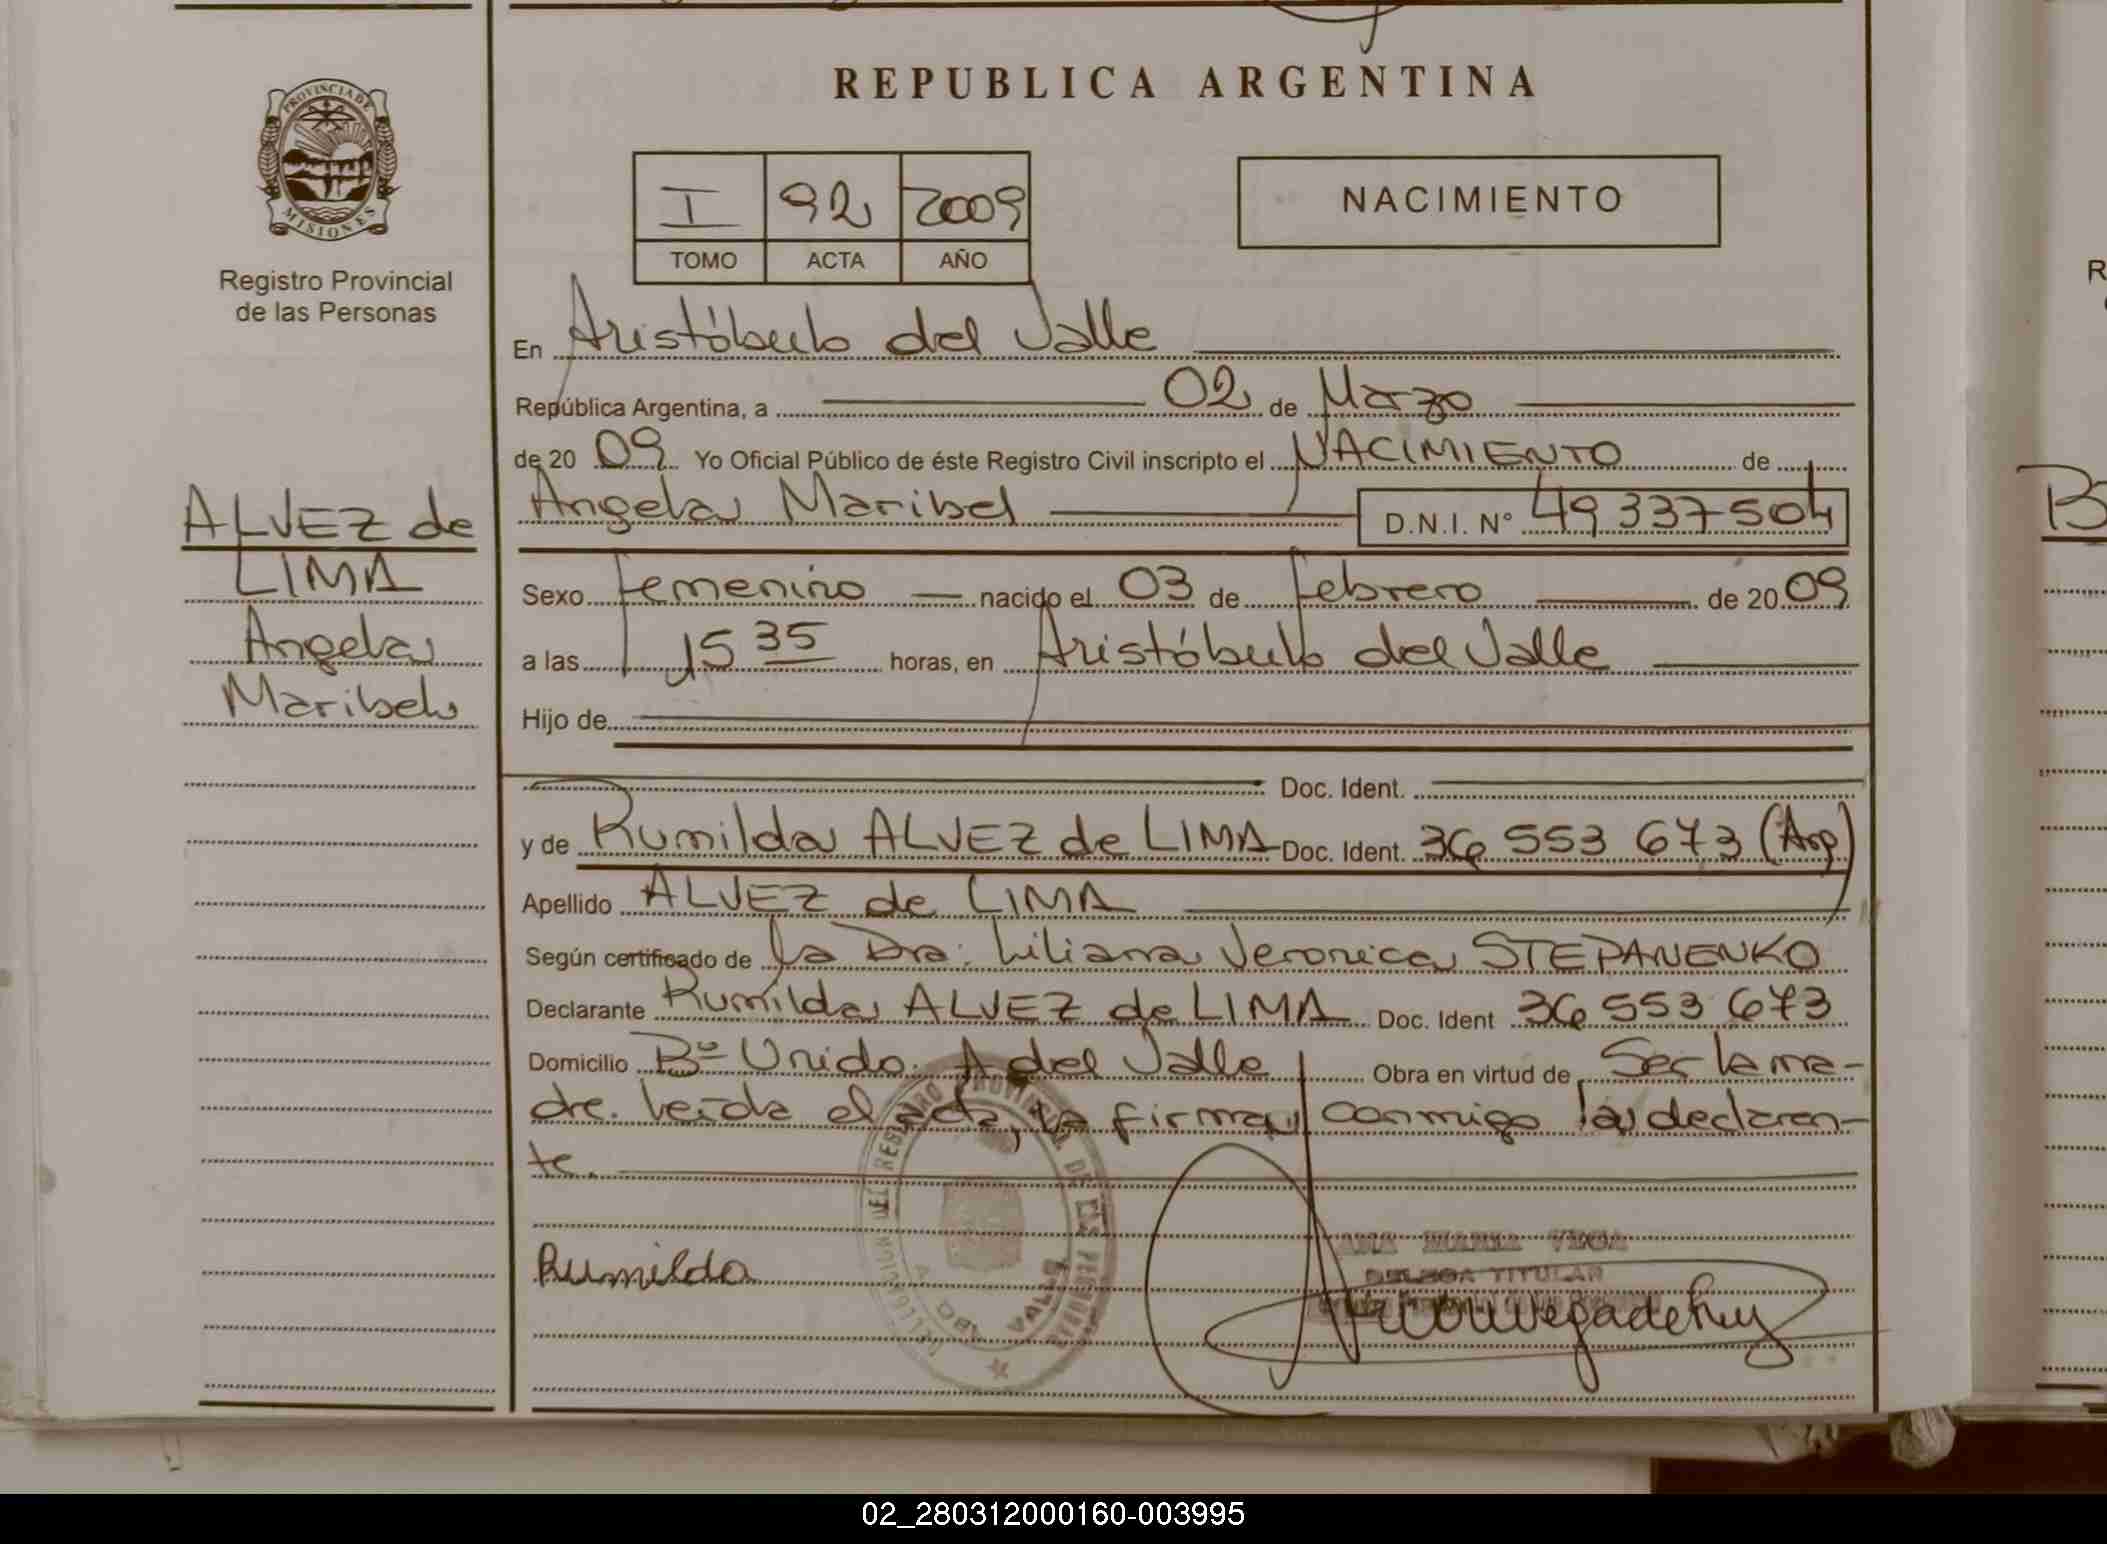 REPUBLICA ARGENTINA
PROVINCIA DE
MISIONES
Registro Provincial
de las Personas
I 92 2009
TOMO ACTA AÑO
NACIMIENTO
En Aristóbulo del Valle
República Argentina, a 02 de Marzo
de 20 09 Yo Oficial Público de éste Registro Civil inscripto el NACIMIENTO de
Angela Maribel D.N.I. Nº 49 337 504
ALVEZ de
LIMA
Angela
Maribel
Sexo femenino nacido el 03 de febrero de 20 09
a las 15 35 horas, en Aristóbulo del Valle
Hijo de
Doc. Ident.
y de Rumilda ALVEZ de LIMA Doc. Ident. 36 553 673 (Arg)
Apellido ALVEZ de LIMA
Según certificado de la Dra. Liliana Veronica STEPANENKO
Declarante Rumilda ALVEZ de LIMA Doc. Ident 36 553 673
Domicilio Bº Unido. A del Valle Obra en virtud de Ser la ma-
dre. Leída el acta, la firma conmigo la declaran-
te.
Rumilda
ANA MARIA VEGA
TITULAR
02_280312000160-003995